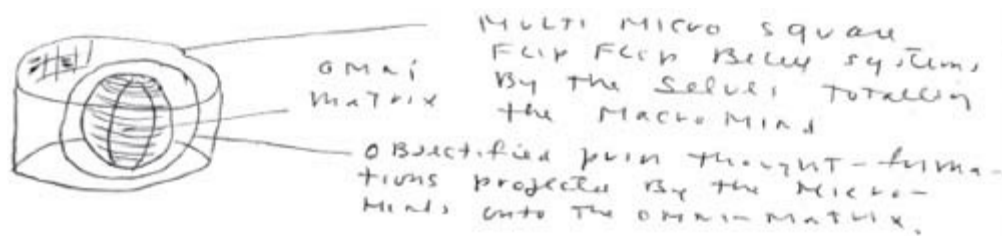 Multi Micro square
Flip Flip Belief systems
By the Selves Totalling
the Macro Mind
omni
matrix
OBJectified pure thought-forma-
tions projected By the Micro-
Minds onto The omni-Matrix.